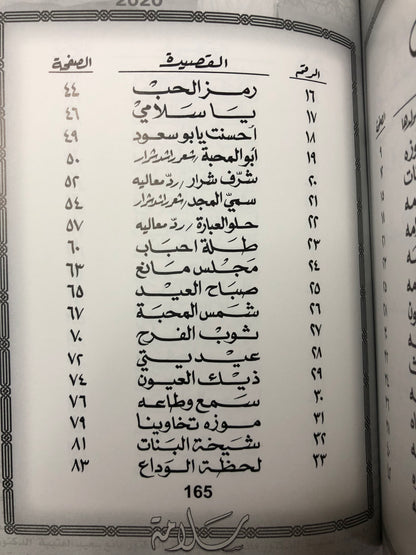 2020
الرقم القصيدة الصفحة
١٦ رمز الحب ٤٤
١٧ يا سلامي ٤٦
١٨ احسنت يابو سعود ٤٩
١٩ ابو المحبة / شعر راشد شرار ٥٠
٢٠ شرّف شرار / ردّ معاليه ٥٢
٢١ سميّ المجد / شعر راشد شرار ٥٤
٢٢ حلو العبارة / ردّ معاليه ٥٧
٢٣ طلة احباب ٦٠
٢٤ مجلس مانع ٦٣
٢٥ صباح العيد ٦٥
٢٦ شمس المحبة ٦٧
٢٧ ثوب الفرح ٧٠
٢٨ عيديتي ٧٢
٢٩ ذيك العيون ٧٤
٣٠ سمع وطاعه ٧٦
٣١ موزه تخاوينا ٧٩
٣٢ شيخة البنات ٨١
٣٣ لحظة الوداع ٨٣
165
سلامة